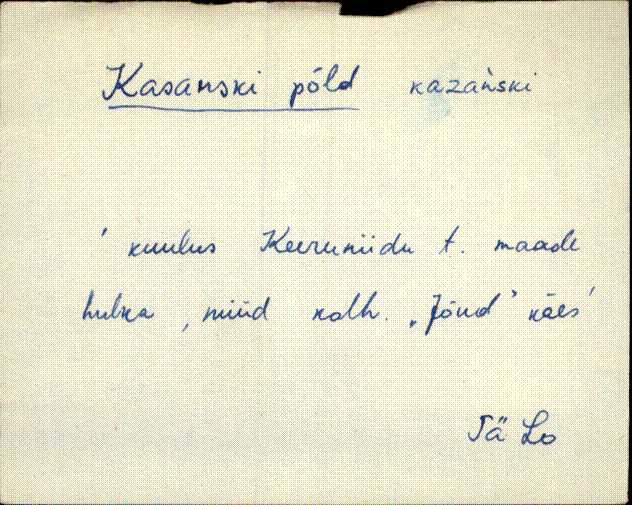 Kasanski põld kazanski
' kuulus Keeruniidu t. maade
hulka, nüüd kolh. „Jõud” käes'
Tä Lo